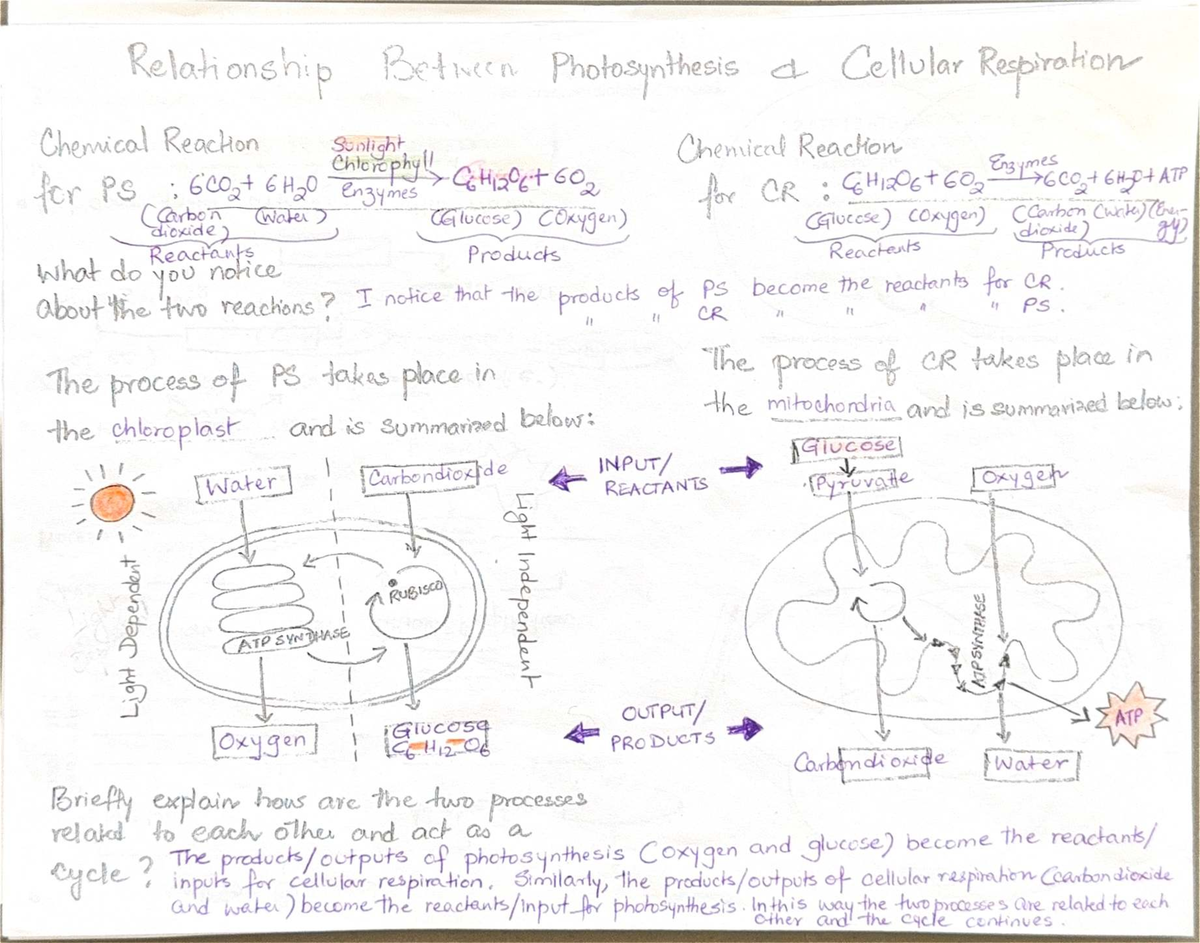 Relationship Between Photosynthesis & Cellular Respiration
Chemical Reaction
for PS : 6CO2 + 6H2O Sunlight Chlorophyll Enzymes → C6H12O6 + 6O2
(Carbon dioxide) (Water) (Glucose) (Oxygen)
Reactants Products
Chemical Reaction
for CR : C6H12O6 + 6O2 Enzymes → 6CO2 + 6H2O + ATP
(Glucose) (Oxygen) (Carbon dioxide) (Water) (Ener-gy)
Reactents Products
What do you notice
about the two reactions? I notice that the products of PS become the reactants for CR.
" " CR " " " " PS.
The process of PS takes place in
the chloroplast and is summarized below:
The process of CR takes place in
the mitochondria and is summarized below:
Water
Carbondioxide
INPUT/
REACTANTS
Glucose
Pyruvate
Oxygen
Light Dependent
ATP SYNTHASE
RUBISCO
Light Independent
ATP SYNTHASE
Oxygen
Glucose
C6H12O6
OUTPUT/
PRODUCTS
Carbondioxide
Water
ATP
Briefly explain how are the two processes
related to each other and act as a
cycle? The products/outputs of photosynthesis (oxygen and glucose) become the reactants/
inputs for cellular respiration. Similarly, the products/outputs of cellular respiration (carbondioxide
and water) become the reactants/input for photosynthesis. In this way the two processes are related to each
other and the cycle continues.